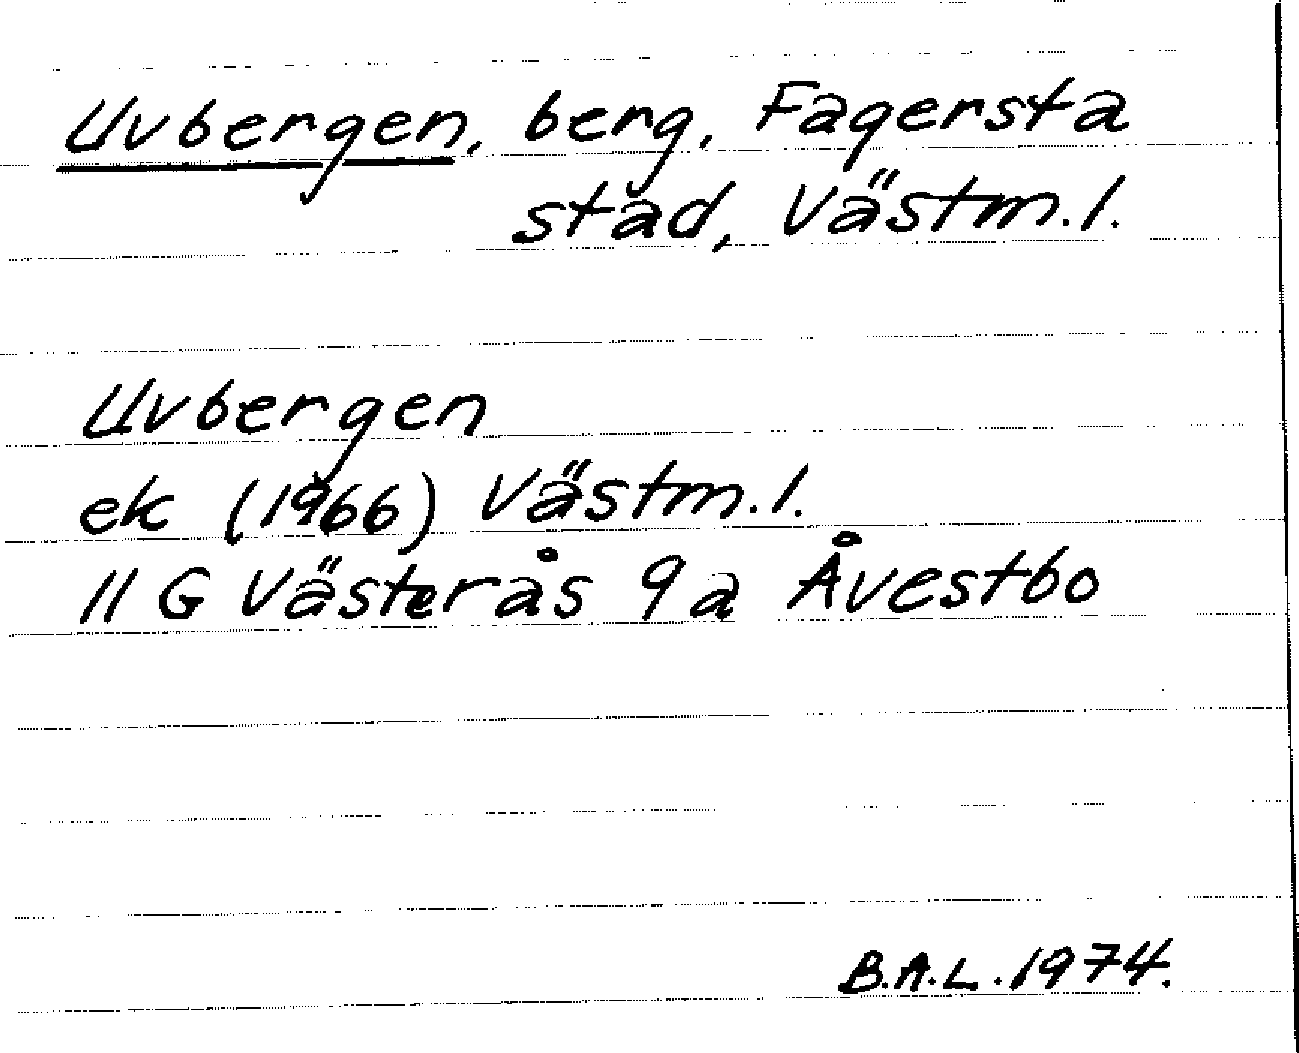 Uvbergen, berg, Fagersta
stad, Västm.l.
Uvbergen
ek (1966) Västm.l.
11 G Västerås 9a Åvestbo
B.A.L. 1974.